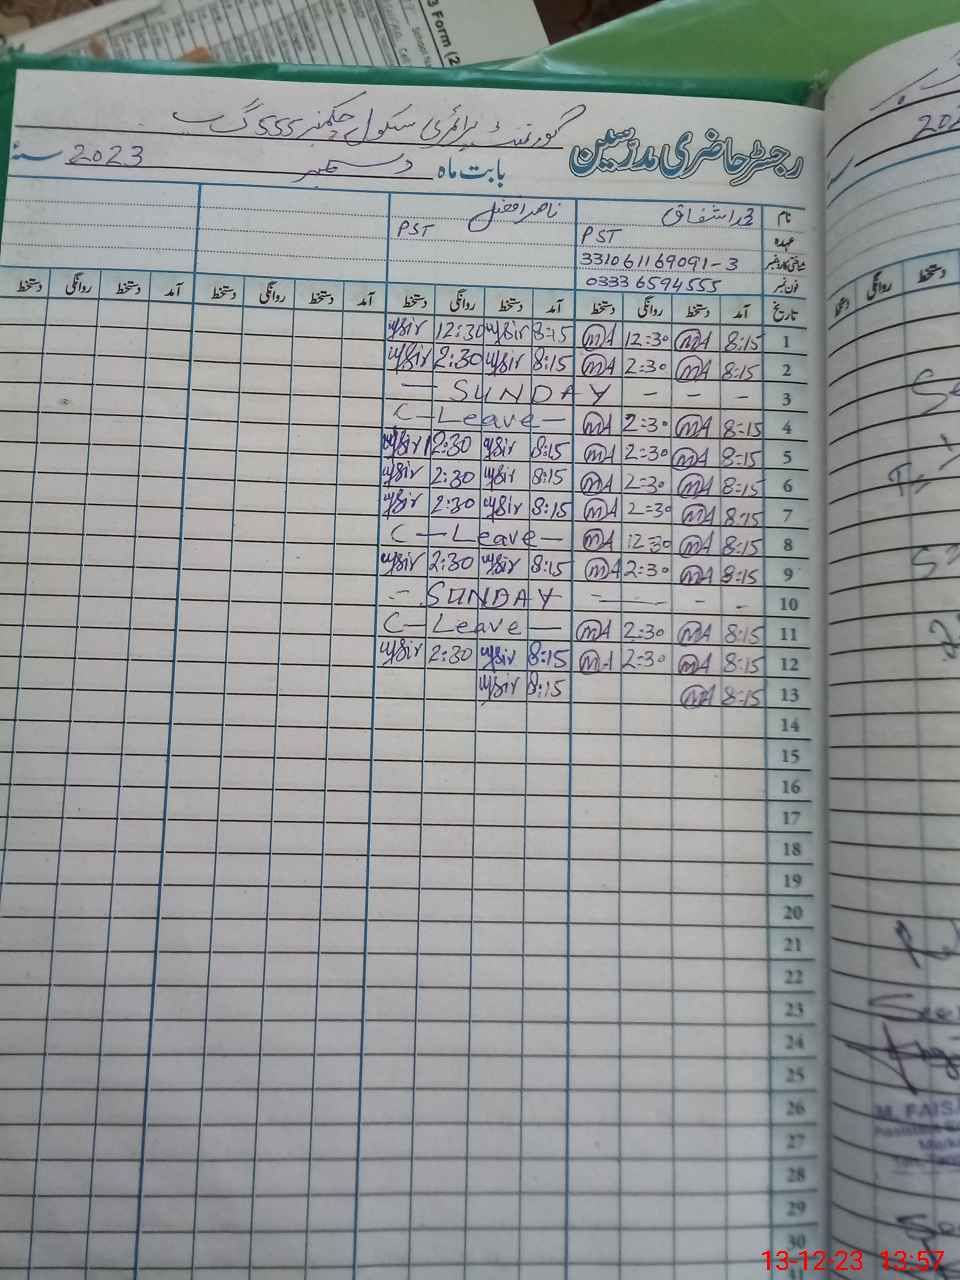 3 Form (2
گورنمنٹ پرائمری سکول چکنمبر 555 گ ب
رجسٹر حاضری مدرسین
بابت ماہ دسمبر 2023 سنہ
نام محمد اشفاق ناصر افضل
عہدہ PST PST
شناختی کارڈ نمبر 331061169091-3
فون نمبر 03336594555
تاریخ آمد دستخط روانگی دستخط آمد دستخط روانگی دستخط آمد دستخط روانگی دستخط آمد دستخط روانگی دستخط
1 8:15 MA 12:30 MA 8:15 12:30
2 8:15 MA 2:30 MA 8:15 2:30
3 - - - SUNDAY -
4 8:15 MA 2:30 MA C-Leave-
5 8:15 MA 2:30 MA 8:15 2:30
6 8:15 MA 2:30 MA 8:15 2:30
7 8:15 MA 2:30 MA 8:15 2:30
8 8:15 MA 12:30 MA C-Leave-
9 8:15 MA 2:30 MA 8:15 2:30
10 - - - SUNDAY -
11 8:15 MA 2:30 MA C-Leave-
12 8:15 MA 2:30 MA 8:15 2:30
13 8:15 MA 8:15
14
15
16
17
18
19
20
21
22
23
24
25
26
27
28
29
30
روانگی دستخط
M. FAIS
13-12-23 13:57